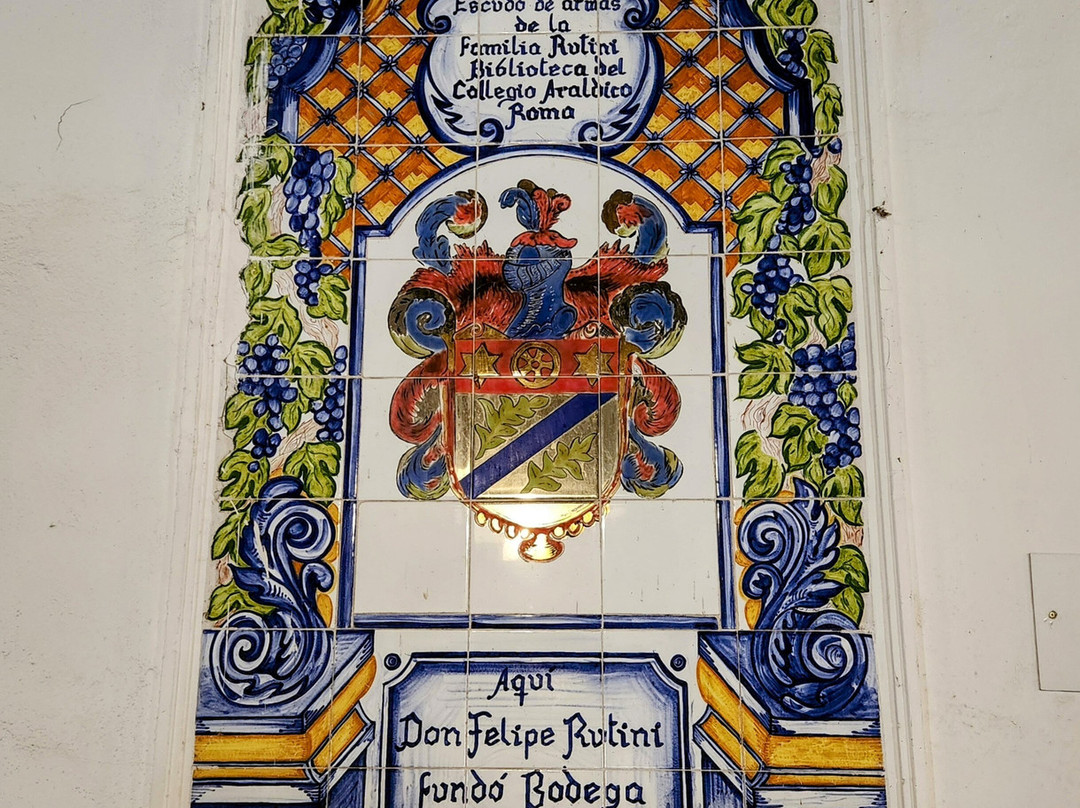 Escudo de armas
de la
Familia Rutini
Biblioteca del
Collegio Araldico
Roma
Aquí
Don Felipe Rutini
fundó Bodega